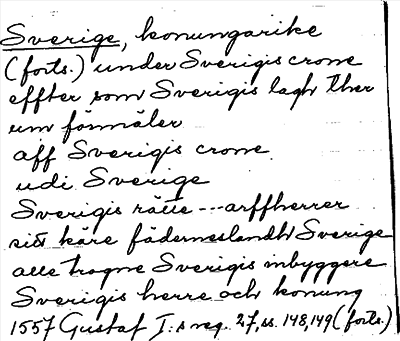 Sverige, konungarike
(forts.) under Sverigis crone
effter som Sverigis lagh ther
um förmäler
aff Sverigis crone
udi Sverige
Sverigis rätte --- arffherrer
sitt käre fäderneslandh Sverige
alle trogne Sverigis inbyggere
Sverigis herre och konung
1557 Gustaf I:s reg. 27, ss. 148, 149 (forts.)